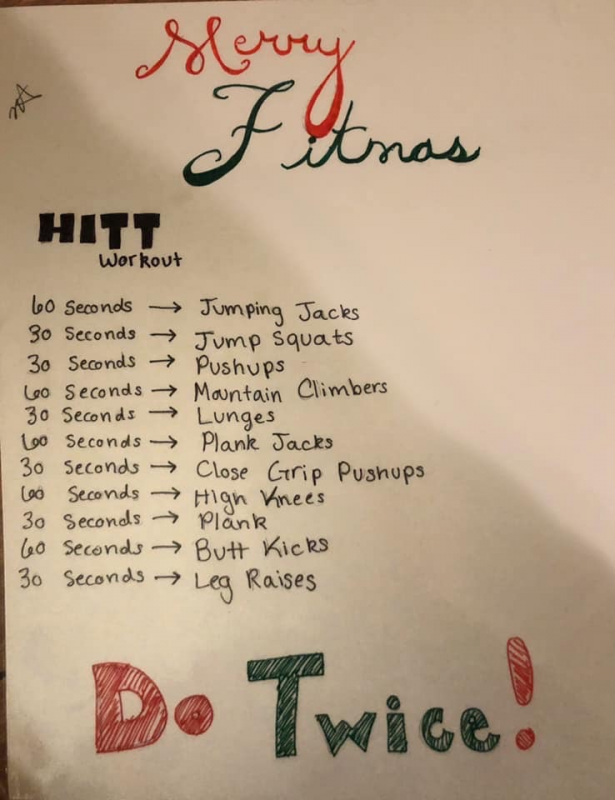 Merry
Fitmas
HITT
Workout
60 Seconds → Jumping Jacks
30 Seconds → Jump Squats
30 Seconds → Pushups
60 Seconds → Mountain Climbers
30 Seconds → Lunges
60 Seconds → Plank Jacks
30 Seconds → Close Grip Pushups
60 Seconds → High Knees
30 Seconds → Plank
60 Seconds → Butt Kicks
30 Seconds → Leg Raises
Do Twice!